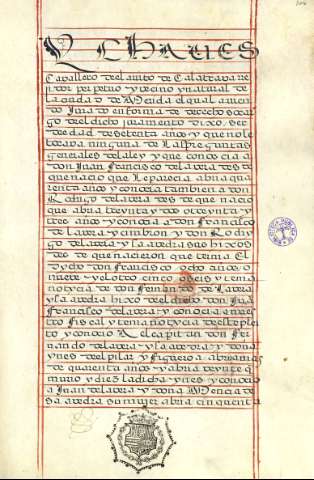 CHAUES
Cavallero del auito de Calatrava Re
jidor perpetuo y vecino y natural de
la ciudad de Merida el qual auiendo
Jurado en forma de derecho so car
go del dicho juramento dixo ser
de edad de setenta años y que no le
tocava ninguna de las preguntas
generales de la ley y que conocia a
don Juan Francisco de la vera des de
que nacio que le parecia abra qua
renta años y conocia tambien a don
Rodrigo de la vera des de que nacio
que abra treynta y dos o treynta y tr
es años y conocia a don Francisco
de la vera y don Rodry
go de la vera y sa avedra sus hixos
des de que nacieron que tenia El
dycho don Francisco ocho años o
nueve y el otro cinco o seis y tenia
notycia de don Fernando de la vera
y sa avedra hixo del dicho don Jua
Francisco de la vera y conocia en pley
to Fiscal y tenia notycia deste pley
to y conocio Al capitan don Fer
nando de la vera y sa avedra y a doña
ynes del pilar y Figueroa abra mas
de quarenta años y abra veynte q
murio y diez la dicha ynes y conocio
a Juan de la vera y doña Mencia de
sa avedra su mujer abra cinquenta